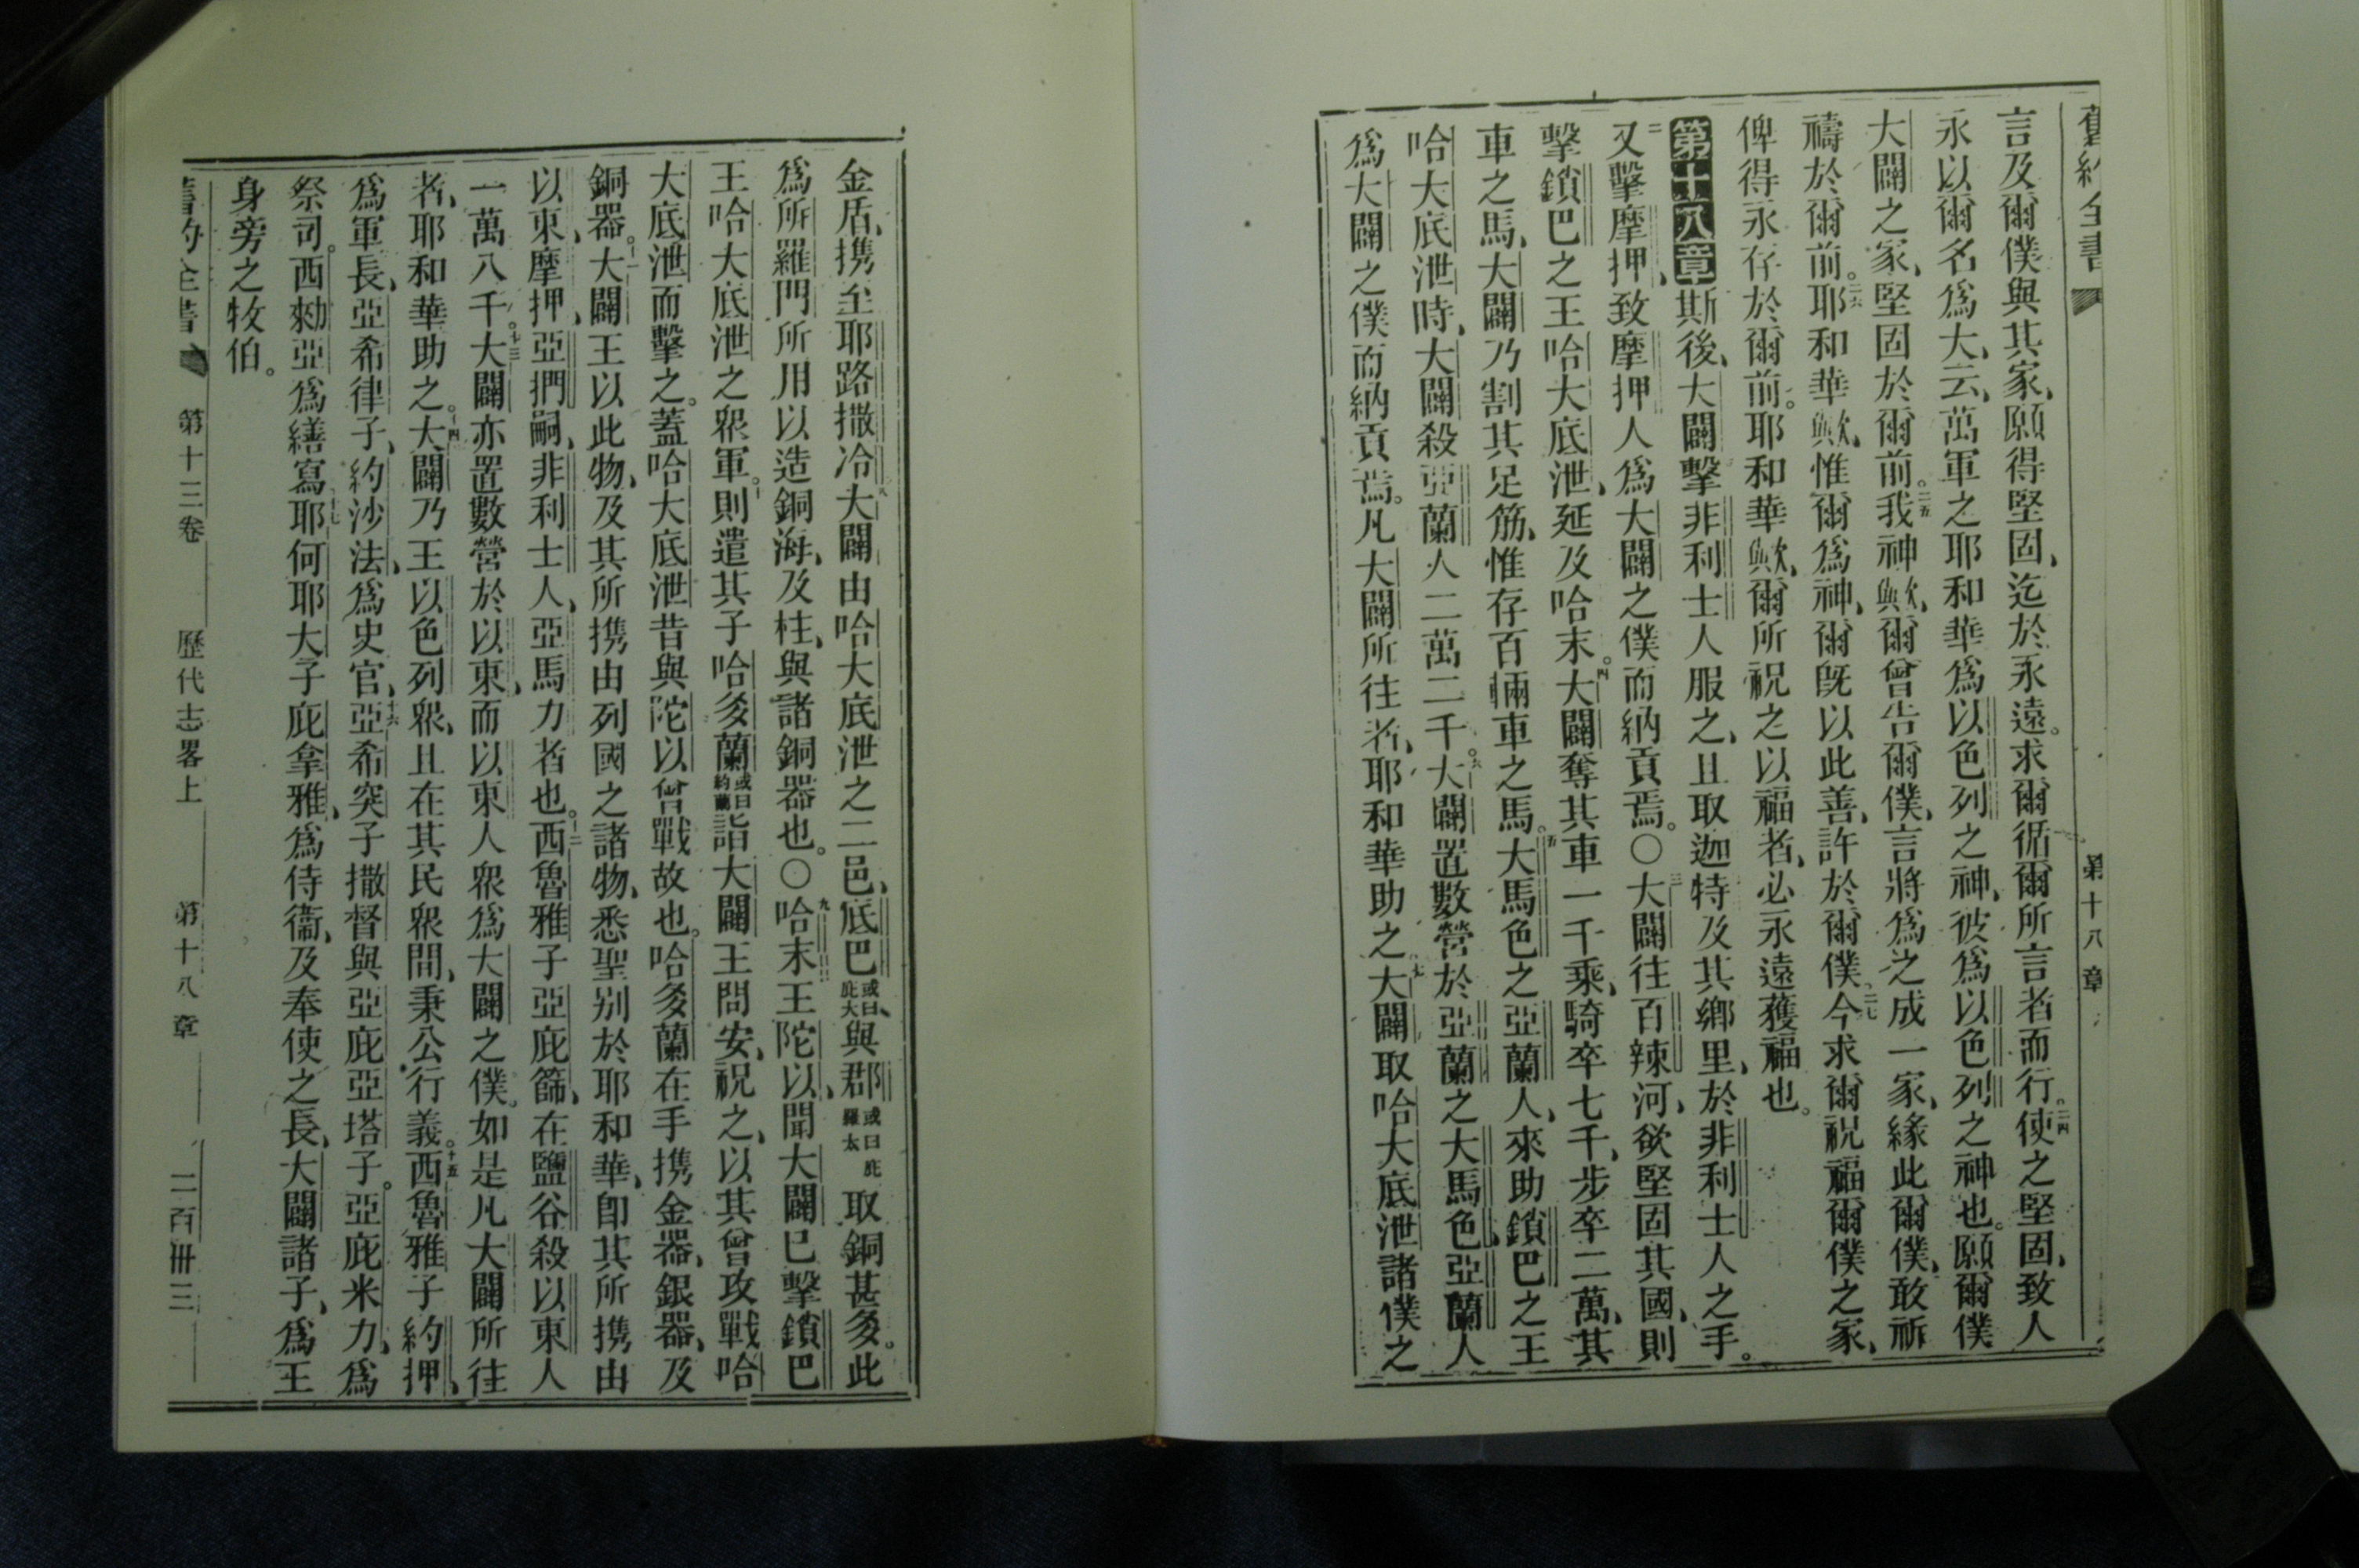 舊約全書 第十八章
言及爾僕與其家、願得堅固、迄於永遠。求爾循爾所言者而行。二四使之堅固、致人
永以爾名爲大、云、萬軍之耶和華爲以色列之神、彼爲以色列之神也。願爾僕
大闢之家、堅固於爾前。二五我神歟、爾曾告爾僕、言將爲之成一家、緣此爾僕、敢祈
禱於爾前。二六耶和華歟、惟爾爲神、爾旣以此善、許於爾僕、二七今求爾祝福爾僕之家、
俾得永存於爾前。耶和華歟、爾所祝之以福者、必永遠獲福也。
第十八章斯後、大闢擊非利士人服之、且取迦特及其鄉里、於非利士人之手。
二又擊摩押、致摩押人爲大闢之僕而納貢焉。○三大闢往百辣河、欲堅固其國、則
擊鎖巴之王哈大底泄、延及哈末。四大闢奪其車一千乘、騎卒七千、步卒二萬、其
車之馬、大闢乃割其足筋、惟存百輛車之馬。五大馬色之亞蘭人、來助鎖巴之王
哈大底泄時、大闢殺亞蘭人二萬二千。六大闢置數營於亞蘭之大馬色、亞蘭人
爲大闢之僕而納貢焉。凡大闢所往者、耶和華助之。七大闢取哈大底泄諸僕之
金盾、携至耶路撒冷、八大闢由哈大底泄之二邑、底巴、或曰庇大與郡或曰庇羅太取銅甚多。此
爲所羅門所用以造銅海、及柱、與諸銅器也。○九哈末王陀以、聞大闢已擊鎖巴
王哈大底泄之衆軍。十則遣其子哈多蘭或曰約蘭詣大闢王問安、祝之、以其曾攻戰哈
大底泄而擊之。蓋哈大底泄昔與陀以曾戰故也。哈多蘭在手携金器、銀器、及
銅器。十一大闢王以此物、及其所携由列國之諸物、悉聖别於耶和華、卽其所携由
以東、摩押、亞捫嗣、非利士人、亞馬力者也。十二西魯雅子亞庇篩、在鹽谷殺以東人
一萬八千。十三大闢亦置數營於以東、而以東人衆爲大闢之僕。如是凡大闢所往
者、耶和華助之。十四大闢乃王以色列衆、且在其民衆間、秉公行義。十五西魯雅子約押、
爲軍長、亞希律子、約沙法、爲史官、十六亞希突子撒督與亞庇亞塔子。亞庇米力、爲
祭司。西勑亞爲繕寫、十七耶何耶大子庇拿雅、爲侍衞、及奉使之長、大闢諸子、爲王
身旁之牧伯。
舊約全書 第十三卷 歷代志畧上 第十八章 二百卌三